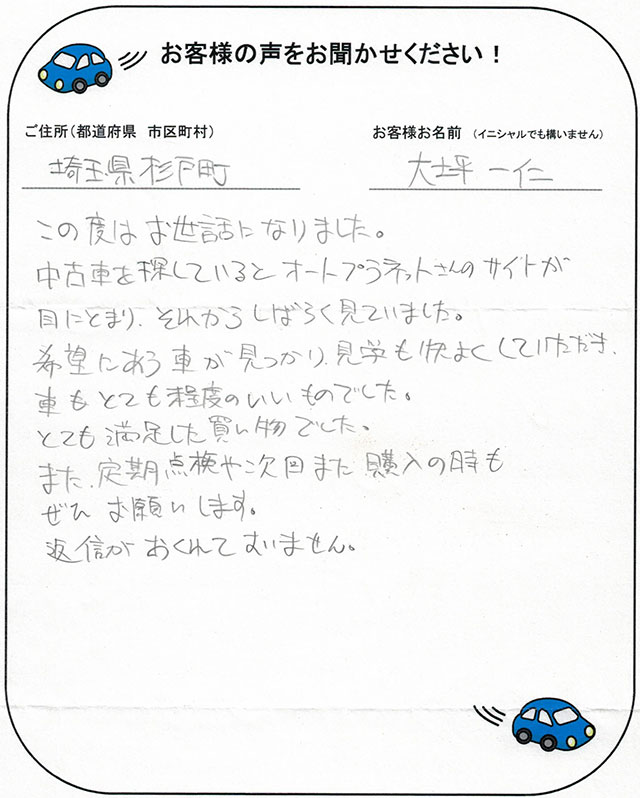 お客様の声をお聞かせください！
ご住所（都道府県 市区町村）
お客様お名前 （イニシャルでも構いません）
埼玉県杉戸町
大坪 一仁
この度は お世話になりました。
中古車を探していると オートプラネットさんの サイトが
目にとまり、それからしばらく見ていました。
希望にあう車が見つかり、見学も快よくしていただき、
車もとても程度のいいものでした。
とても満足した買い物でした。
また、定期点検や次回また購入の時も
ぜひ お願いします。
返信が おくれて すいません。